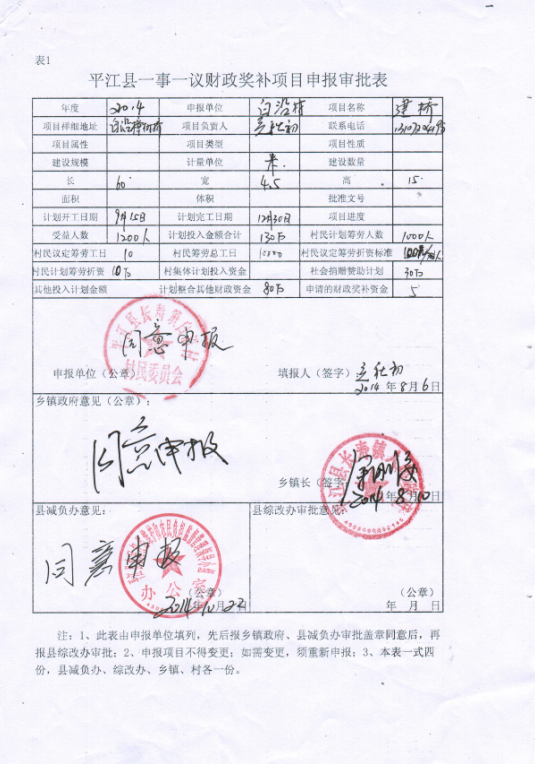 表1
平江县一事一议财政奖补项目申报审批表
年度 2014 申报单位 白沿村 项目名称 建桥
项目祥细地址 白沿村 项目负责人 联系电话
项目属性 项目类型 项目性质
建设规模 计量单位 米 建设数量
长 60 宽 4.5 高 15
面积 体积 批准文号
计划开工日期 9月15日 计划完工日期 12月30日 项目进度
受益人数 1200人 计划投入金额合计 130万 村民计划筹劳人数 1000人
村民议定筹劳工日 10 村民筹劳总工日 10000 村民议定筹劳折资标准
村民计划筹劳折资 10万 村集体计划投入资金 社会捐赠赞助计划 30万
其他投入计划金额 计划整合其他财政资金 80万 申请的财政奖补资金 5
同意申报
平江县长寿镇 村民委员会
申报单位（公章） 填报人（签字）
2014年8月6日
乡镇政府意见（公章）：
同意申报
平江县长寿镇人民政府
乡镇长（签字）
2014 8 10
县减负办意见： 县综改办审批意见：
同意申报
办公室
（公章） （公章）
2014年10 22 年 月 日
注：1、此表由申报单位填列，先后报乡镇政府、县减负办审批盖章同意后，再
报县综改办审批；2、申报项目不得变更；如需变更，须重新申报；3、本表一式四
份，县减负办、综改办、乡镇、村各一份。